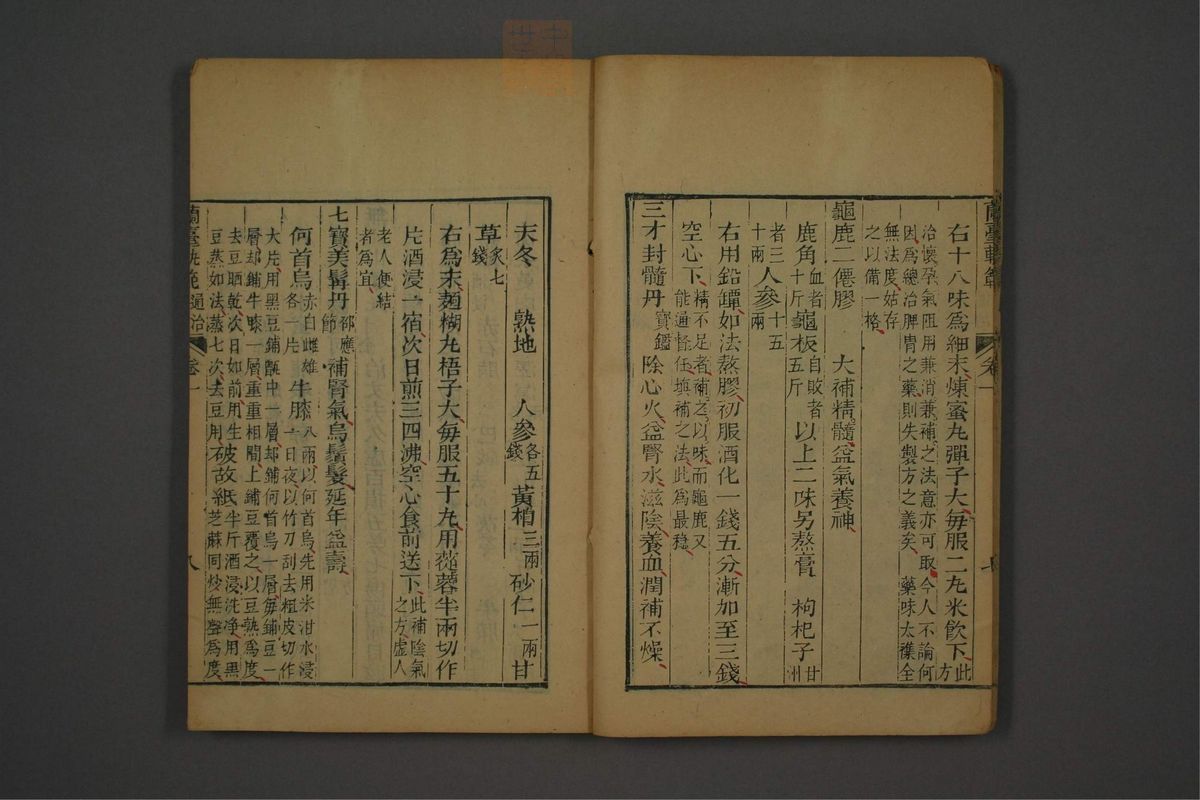 右十八味爲細末煉蜜丸彈子大每服二丸米飲下此方
治懷孕氣阻用兼消兼補之法意亦可取今人不論何
因爲總治脾胃之藥則失製方之義矣　藥味太襍全
無法度姑存
之以備一格
龜鹿二僊膠　大補精髓益氣養神
鹿角血者十斤龜板自敗者五斤以上二味另熬膏　枸杞子甘州
者三十兩人參十五兩
右用鉛罈如法熬膠初服酒化一錢五分漸加至三錢
空心下精不足者補之以味而龜鹿又
能通督任填補之法此爲最穩
三才封髓丹寶鑑降心火益腎水滋陰養血潤補不燥
蘭臺軌範
卷一
天冬　熟地　人參各五錢黃柏三兩砂仁一兩甘
草炙七錢
右爲末麪糊丸梧子大每服五十丸用蓯蓉半兩切作
片酒浸一宿次日煎三四沸空心食前送下此補陰氣之方虛人
老人便結
者爲宜
七寶美髯丹邵應節補腎氣烏鬚髮延年益壽
何首烏赤白雌雄各一片牛膝八兩以何首烏先用米泔水浸一日夜以竹刀刮去粗皮切作
大片用黑豆鋪甑中一層却鋪何首烏一層每鋪豆一
層却鋪牛膝一層重重相間上鋪豆覆之以豆熟爲度
去豆晒乾次日如前用生
豆蒸如法蒸七次去豆用破故紙半斤酒浸洗净用黑芝蔴同炒無聲爲度
蘭臺軌範　通治
卷一
八